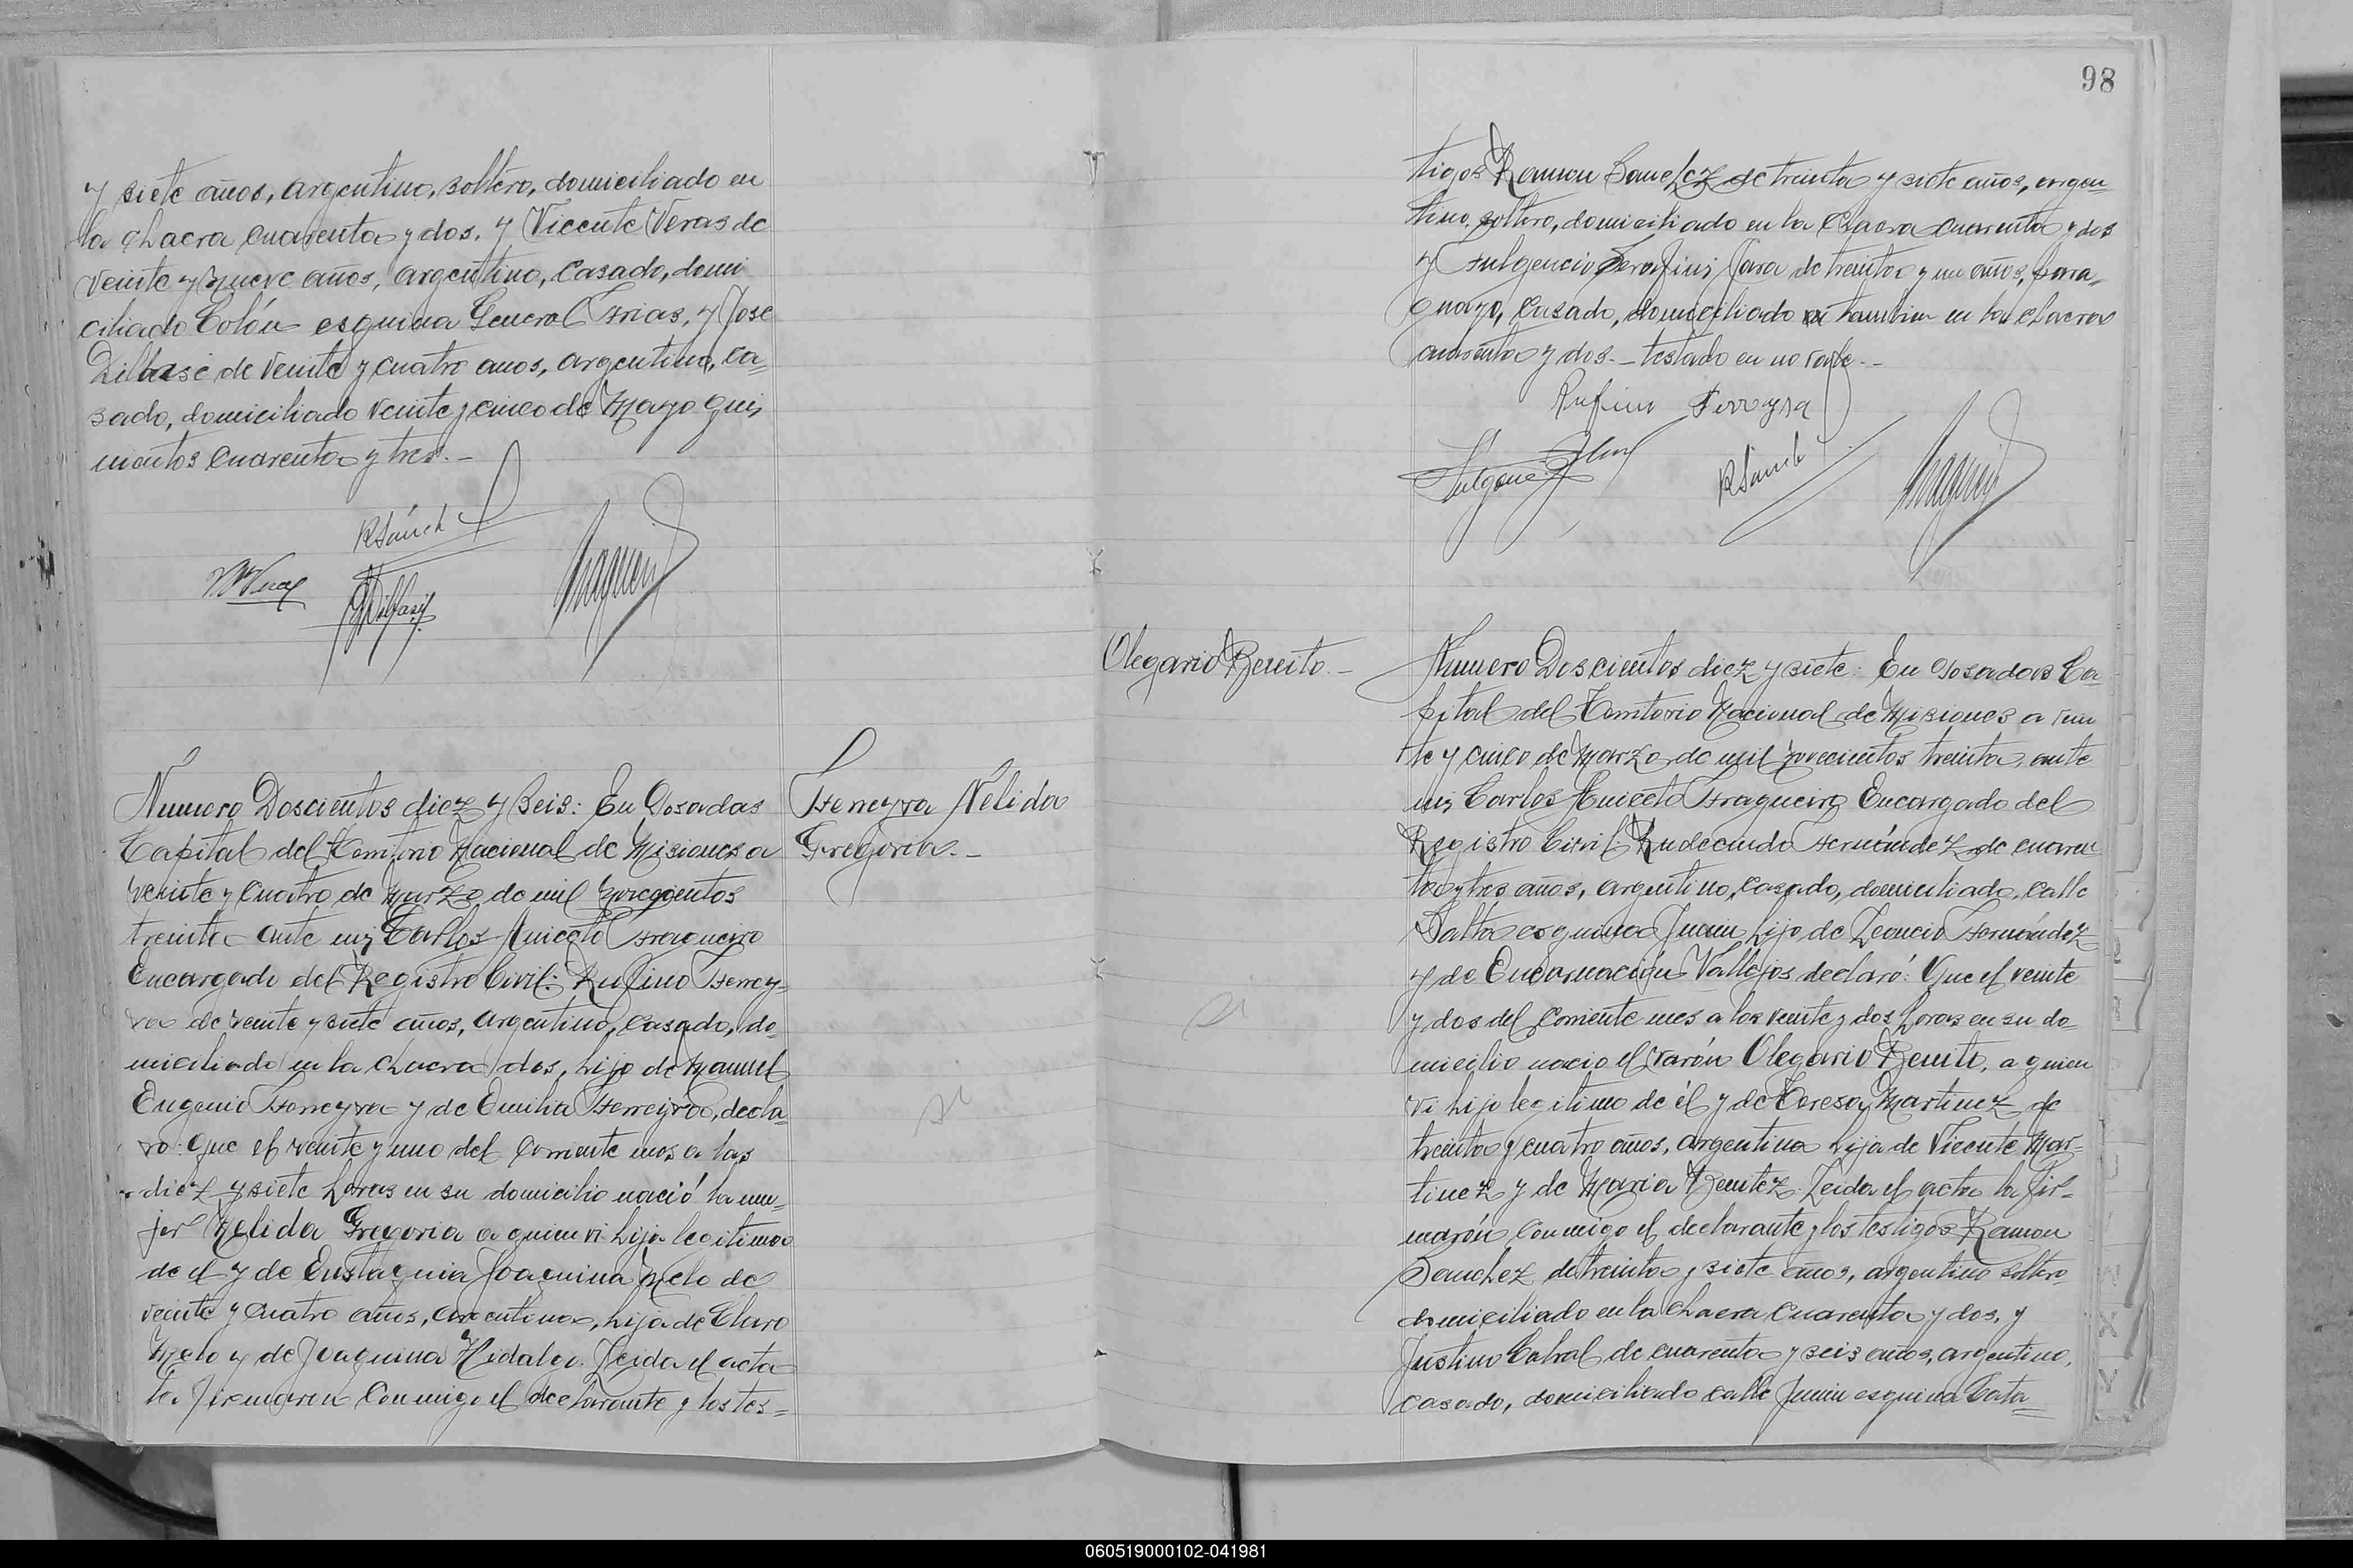 y siete años, argentino, soltero, domiciliado en
la chacra cuarenta y dos, y Vicente Veras de
veinte y nueve años, argentino, casado, domi
ciliado Colón esquina General Frias, y Jose
de veinte y cuatro anos, argentino, ca=
sado, domiciliado veinte y cinco de Mayo qui,
nientos cuarenta y tres.-
RSánch
Numero Doscientos diez y seis: En Posadas
Capital del Territorio Nacional de Misiones a
veinte y cuatro de Marzo de mil novecientos
treinta ante mi, Carlos Aniceto Fragueiro
Encargado del Registro Civil: Rufino Ferrey=
ra de veinte y siete años, argentino, casado, do=
miciliado en la chacra dos, hijo de Manuel
Eugenio Ferreyra y de Emilia Ferreyra, decla
ro: Que el veinte y uno del corriente mes a las
diez y siete horas en su domicilio nació la mu=
jer Nelida Gregoria a quien vi hija legitima
de el y de Eustaquia Joaquina Melo de
veinte y cuatro años, argentina, hija de Claro
Melo y de Joaquina Hidalgo. Leida el acta
la firmaron conmigo el declarante y los tes=
Ferreyra Nélida
Gregoria.-
98
tigos Ramon Sanchez de treinta y siete años, argen=
tino, soltero, domiciliado en la chacra cuarenta y dos
y Fulgencio Serafini Jara de treinta y un años, para=
guayo, casado, domiciliado en tambien en la chacra
cuarenta y dos.- testado en no vale.-
Rufino Ferreyra
RSánch
Olegario Benito.-
Numero Doscientos diez y siete: En Posadas Ca=
pital del Territorio Nacional de Misiones a vein
te y cinco de Marzo de mil novecientos treinta, ante
mi, Carlos Aniceto Fragueiro Encargado del
Registro Civil: Rudecindo Fernández de cuaren
ta y tres años, argentino, casado, domiciliado, calle
Salta esquina Junin, hijo de Leoncio Fernández
y de Encarnación Vallejos declaró: Que el veinte
y dos del corriente mes a las veinte y dos horas en su do=
micilio nacio el varón Olegario Benito, a quien
vi hijo legitimo de él y de Teresa Martinez de
treinta y cuatro años, argentina hija de Vicente Mar=
tinez y de Maria Benitez. Leida el acta la fir=
marón conmigo el declarante y los testigos Ramon
Sanchez de treinta y siete años, argentino soltero
domiciliado en la chacra cuarenta y dos, y
Justino Cabral de cuarenta y seis años, argentino,
casado, domiciliado calle Junin esquina Cata=
060519000102-041981